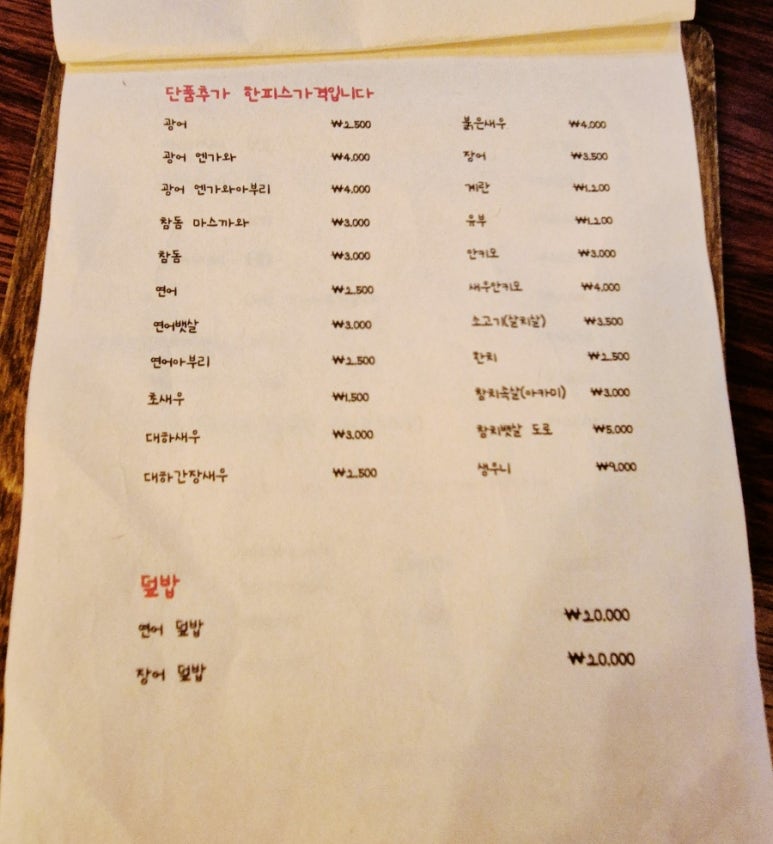 단품추가 한피스가격입니다
광어 ₩2,500
광어 엔가와 ₩4,000
광어 엔가와아부리 ₩4,000
참돔 마스까와 ₩3,000
참돔 ₩3,000
연어 ₩2,500
연어뱃살 ₩3,000
연어아부리 ₩2,500
초새우 ₩1,500
대하새우 ₩3,000
대하간장새우 ₩2,500
붉은새우 ₩4,000
장어 ₩3,500
계란 ₩1,200
유부 ₩1,200
안키모 ₩3,000
새우안키모 ₩4,000
소고기(살치살) ₩3,500
한치 ₩2,500
참치속살(아카미) ₩3,000
참치뱃살 도로 ₩5,000
생우니 ₩9,000
덮밥
연어 덮밥 ₩20,000
장어 덮밥 ₩20,000